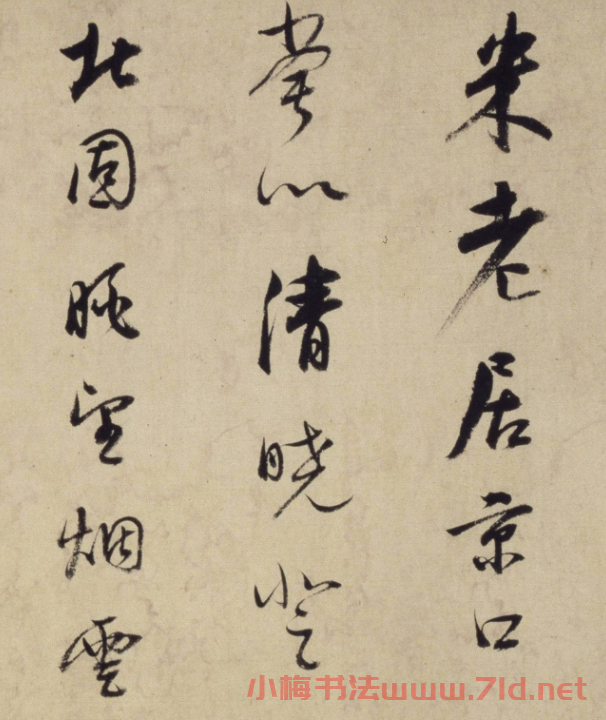 米老居京口
嘗以清曉登
北固眺望烟雲
小梅书法www.7ld.net